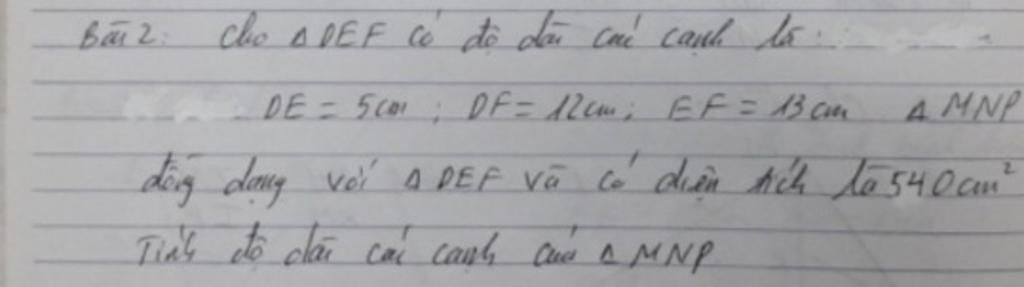 Bài 2: Cho Δ DEF có độ dài các cạnh là:
DE = 5cm ; DF = 12cm ; EF = 13cm Δ MNP
đồng dạng với Δ DEF và có diện tích là 540cm²
Tính độ dài các cạnh của Δ MNP